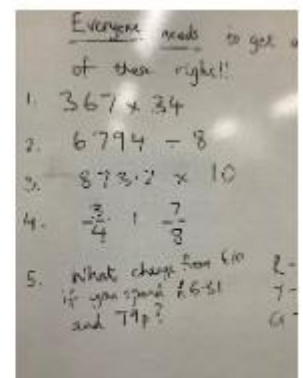 Everyone needs to get
of these right!!
1. 367 x 34
2. 6794 ÷ 8
3. 873.2 x 10
4. 3/4 7/8
5. What change from £10 2-
if you spend £6.51 7-
and 79p?